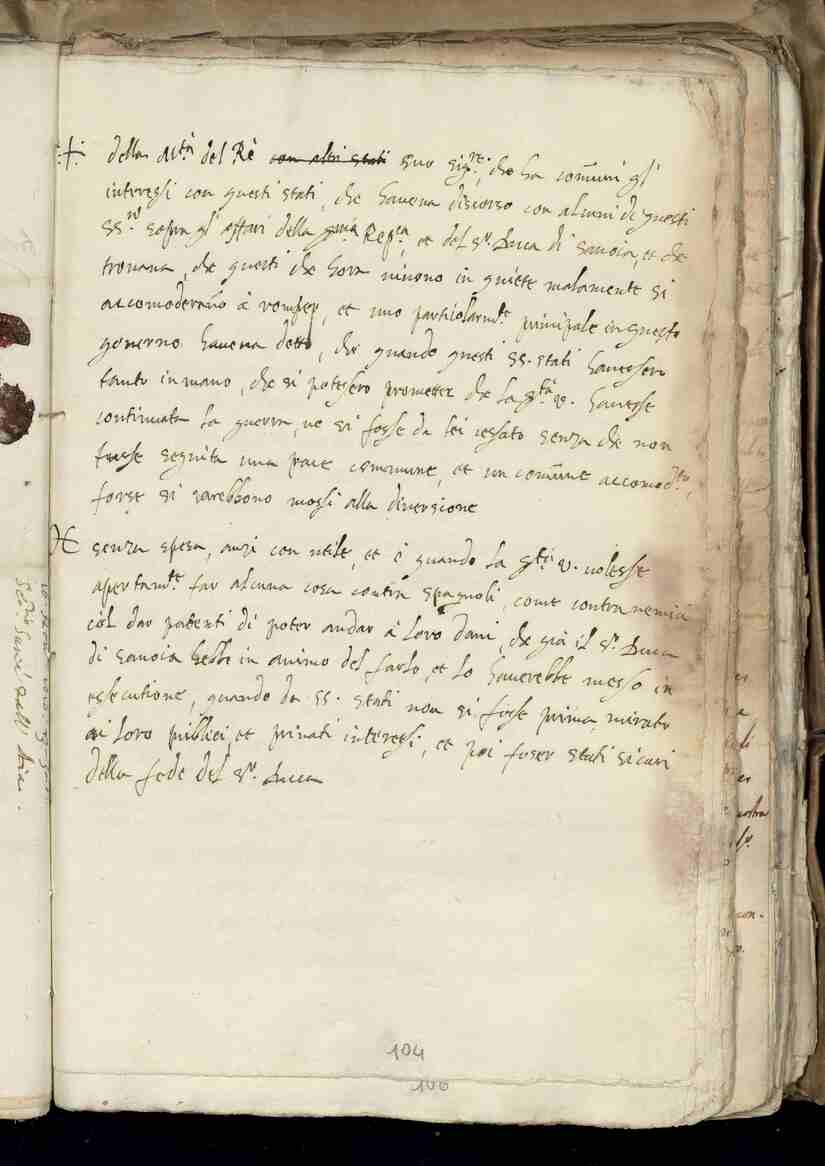 della M.tà del Rè con altri stati suo sig.re, che ha com̃uni gl'
interessi con questi stati, che haveva discorso con alcuni di questi
SS.ri sopra gl'affari della Ser.ma Rep.ca, et del S.r Duca di Savoia, et che
trovava, che questi che hora vivono in quiete malamente si
accomoderan̄o à romper, et uno particolarm.te principale in questo
governo haveva detto, che quando questi SS. stati havessero
tanto in mano, che si potessero prometter che la S.tà V. havesse
continuata la guerra, ne si fosse da lei cessato senza che non
fusse seguita una pace commune, et un com̃une accomod.to,
forse si sarebbono mossi alla diversione
senza spesa, anzi con utile, et è quando la S.tà V. volesse
apertam.te far alcuna cosa contra spagnoli, come contra nemici
col dar patenti di poter andar à loro dani, che già il S.r Duca
di Savoia hebbe in animo del farlo, et lo haverebbe messo in
essecutione, quando da SS. stati non si fosse prima mirato
ai loro publici, et privati interessi, et poi foser stati sicuri
della fede del S.r Duca
104
106